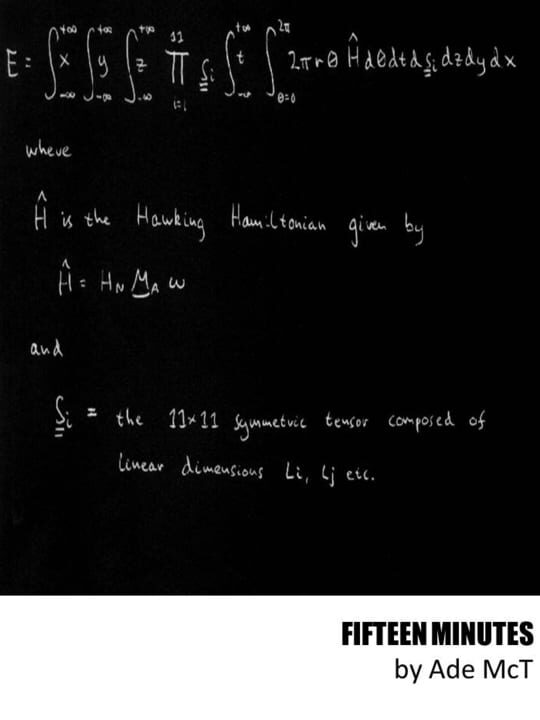 E = ∫_{-∞}^{+∞} x ∫_{-∞}^{+∞} y ∫_{-∞}^{+∞} z ∏_{i=1}^{11} S̳i ∫_{-∞}^{+∞} t ∫_{θ=0}^{2π} 2πrθ Ĥ dθ dt dS̳i dz dy dx
where
Ĥ is the Hawking Hamiltonian given by
Ĥ = H_N M̲_A ω
and
S̳i = the 11×11 symmetric tensor composed of
linear dimensions Li, Lj etc.
FIFTEEN MINUTES
by Ade McT